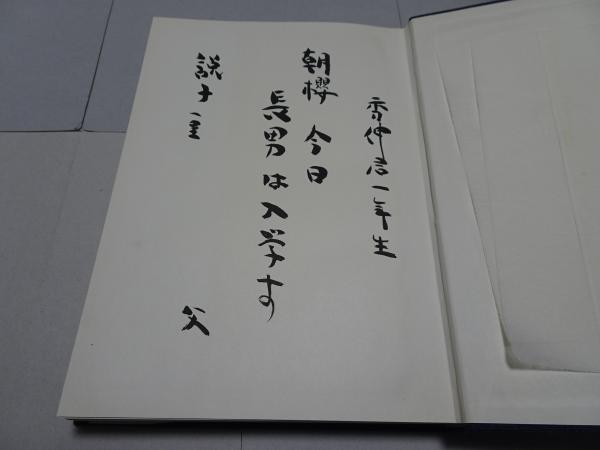 秀仲君一年生
朝櫻 今日
長男は入学す
父